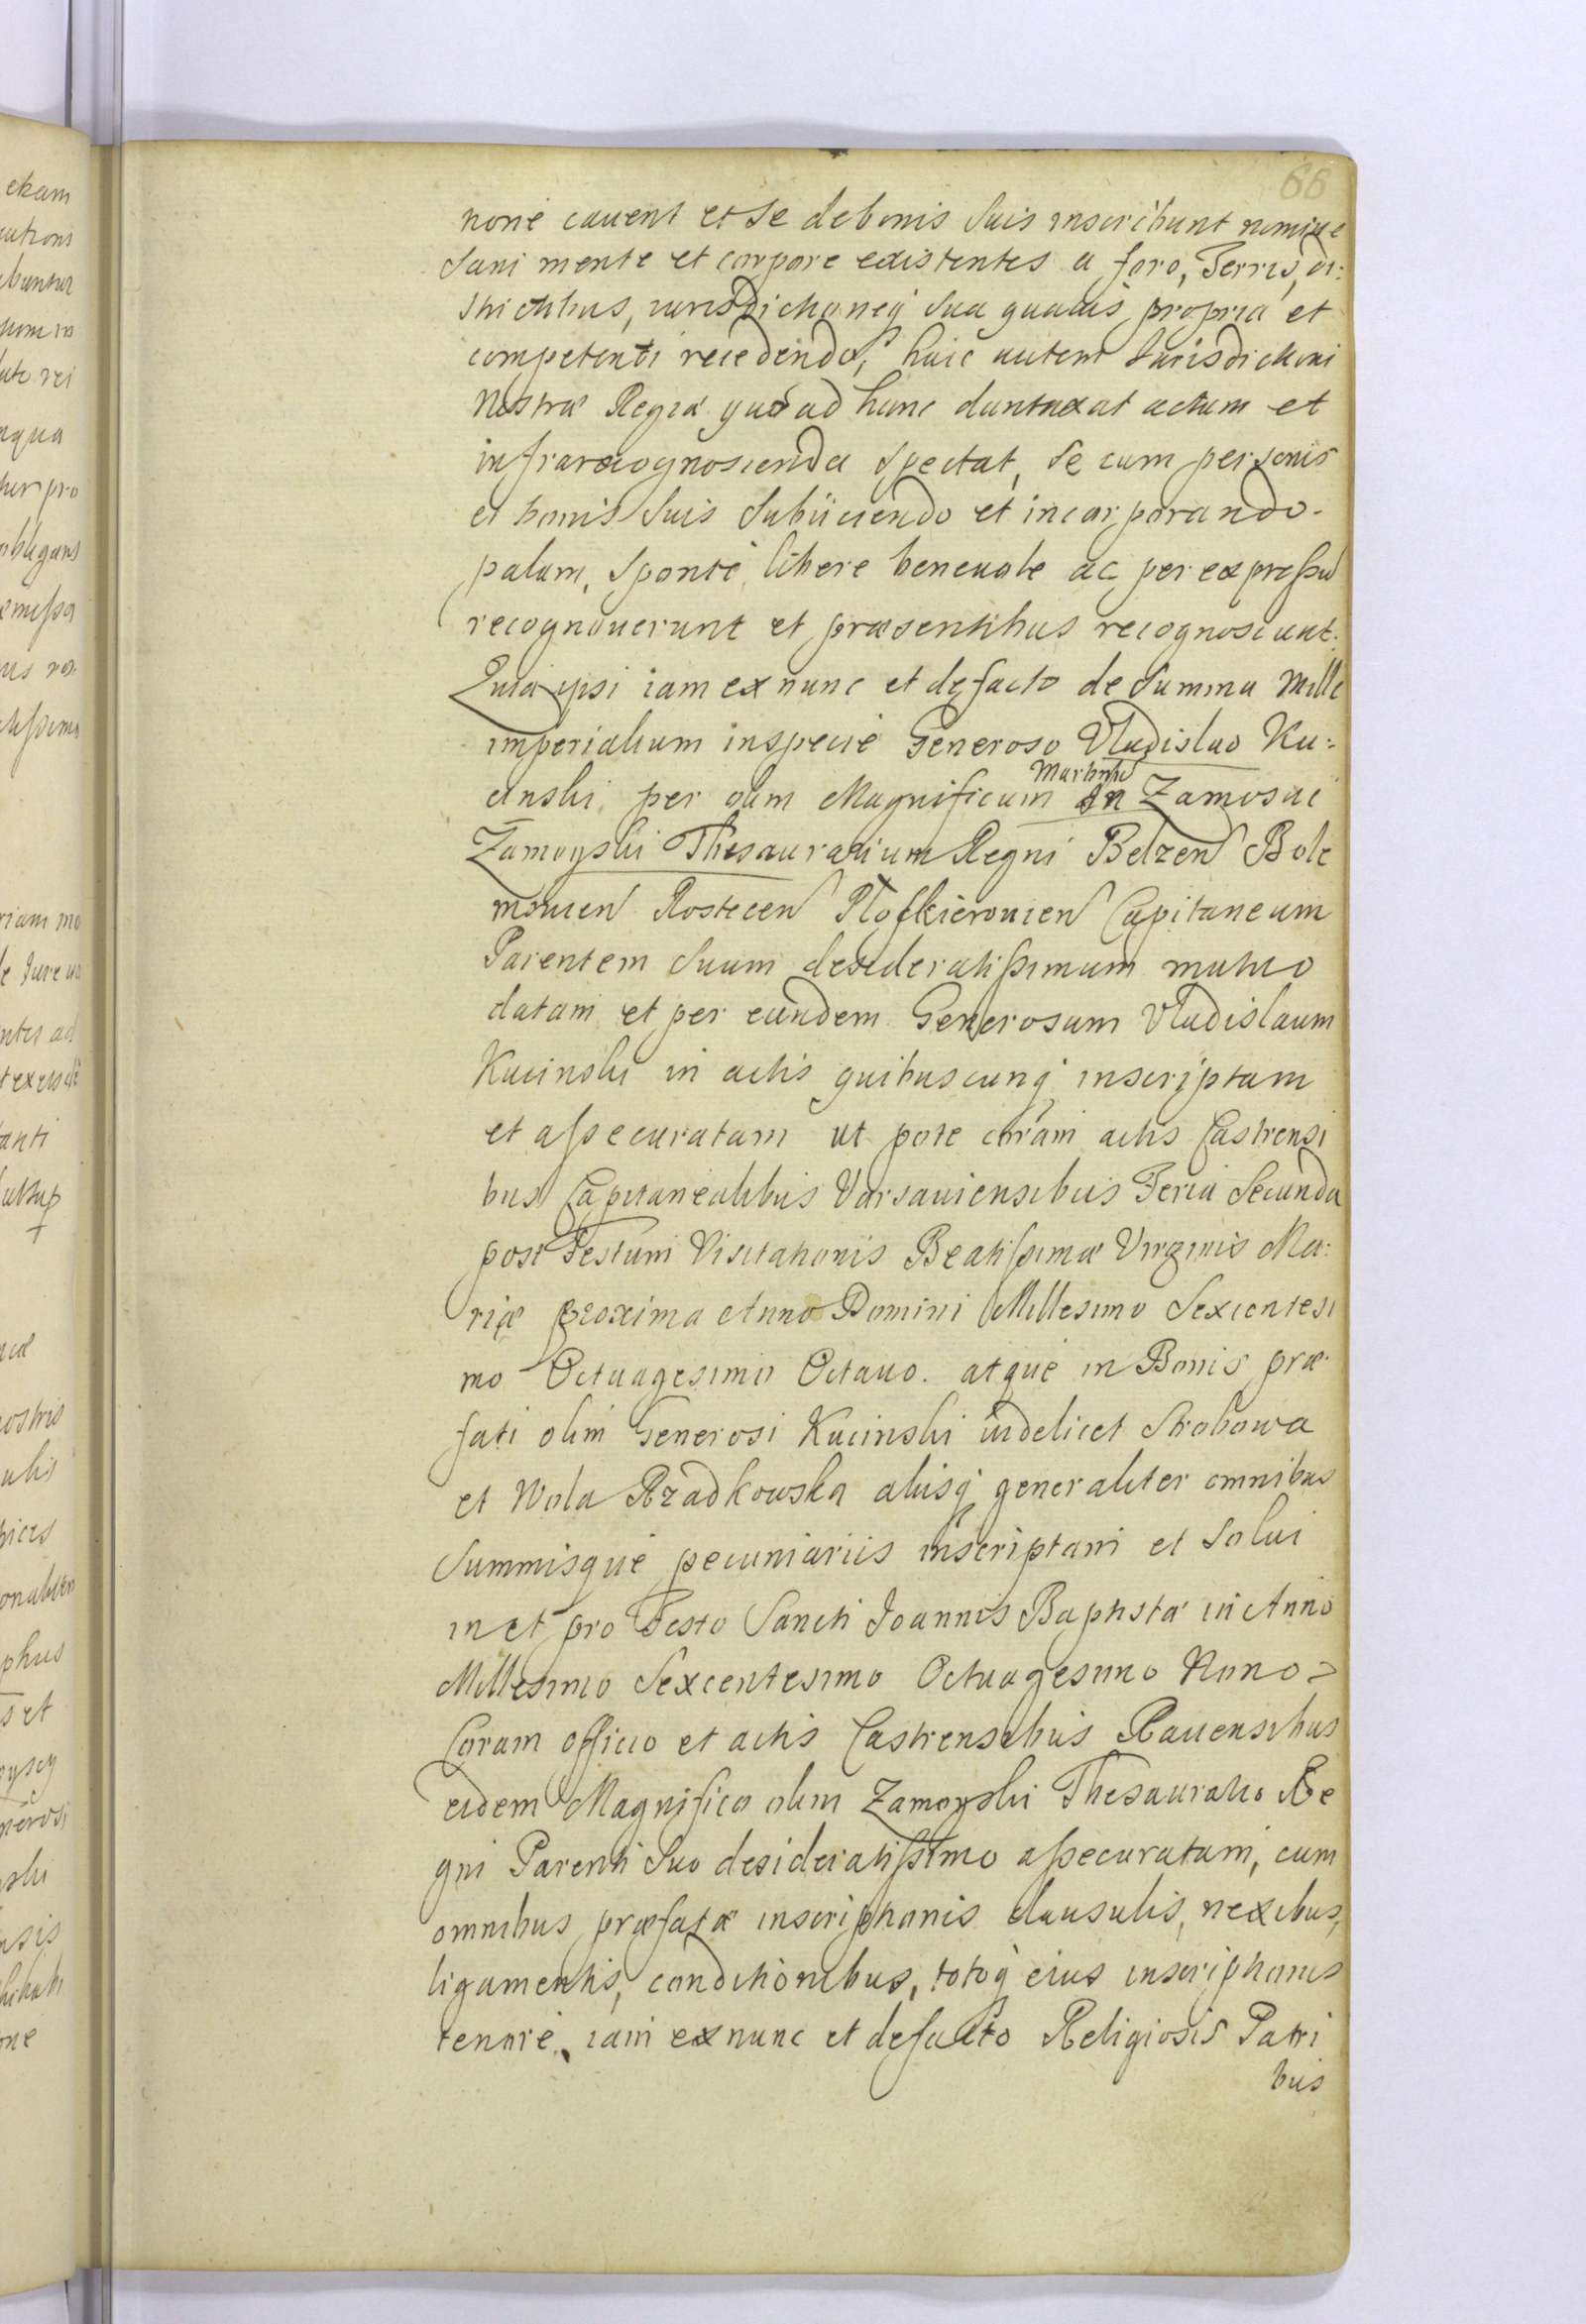 66
none cauent et se de bonis suis inscribunt nomine
Sani mente et corpore existentes a foro, Terris, di:
strictibus, iurisdictioneq́ sua quauis propria et
competenti recedendo, huic autem Iurisdictioni
Nostræ Regiæ quo ad hunc duntaxat actum et
infrarecognoscenda spectat, se cum personis
et bonis suis subijciendo et incorporando.
palam, sponte, libere beneuole ac per expressũ
recognouerunt et præsentibus recognoscunt.
Quia ipsi iam ex nunc et de facto de Summa Mille
imperialium in specie Generoso Vladislao Ku:
cinski per olim Magnificum
Martinũ
in Zamoscie
Zamoyski Thesaurarium Regni Belzen Boli
mouien Rostecen Capitaneum
Parentem Suum desideratissimum mutuo
datam et per eundem Generosum Vladislaum
Kucinski in actis quibuscunq́ inscriptam
et assecuratam ut pote coram actis Castrensi
bus Capitanealibus Varsauiensibus Feria Secunda
post Festum Visitationis Beatissimæ Virginis Ma:
riæ proxima Anno Domini Millesimo Sexcentesi
mo Octuagesimo Octauo. atque in Bonis præ
fati olim Generosi Kucinski uidelicet Strobowa
et Wola Rzadkowska alijsq́ generaliter omnibus
Summisque pecuniarijs inscriptam et Solui
in et pro Festo Sancti Joannis Baptistæ in Anno
Millesimo Sexcentesimo Octuagesimo Nono
Coram officio et actis Castrensibus Rauensibus
eidem Magnifico olim Zamoyski Thesaurario Re
gni Parenti Suo desideratissimo assecuratam, cum
omnibus præfatæ inscriptionis clausulis, nexibus,
ligamentis, conditionibus, totoq́ eius inscriptionis
tenore, iam ex nunc et de facto Religiosis Patri
bus